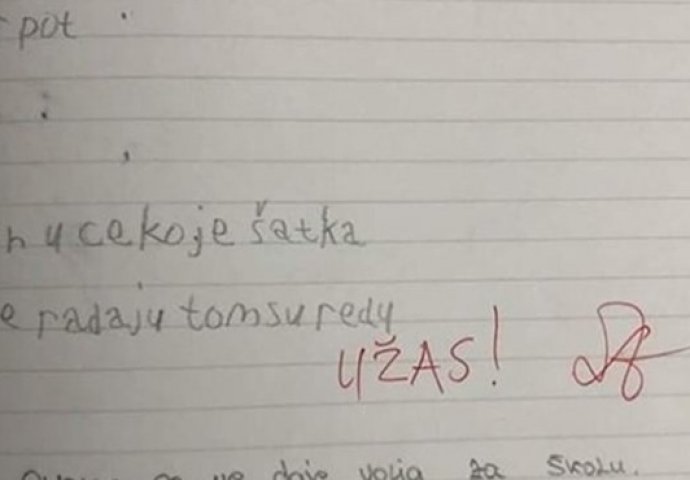 pot
n ucekoje šatka
e radaju tomsuredu
UŽAS!
se ne daje volja za školu.